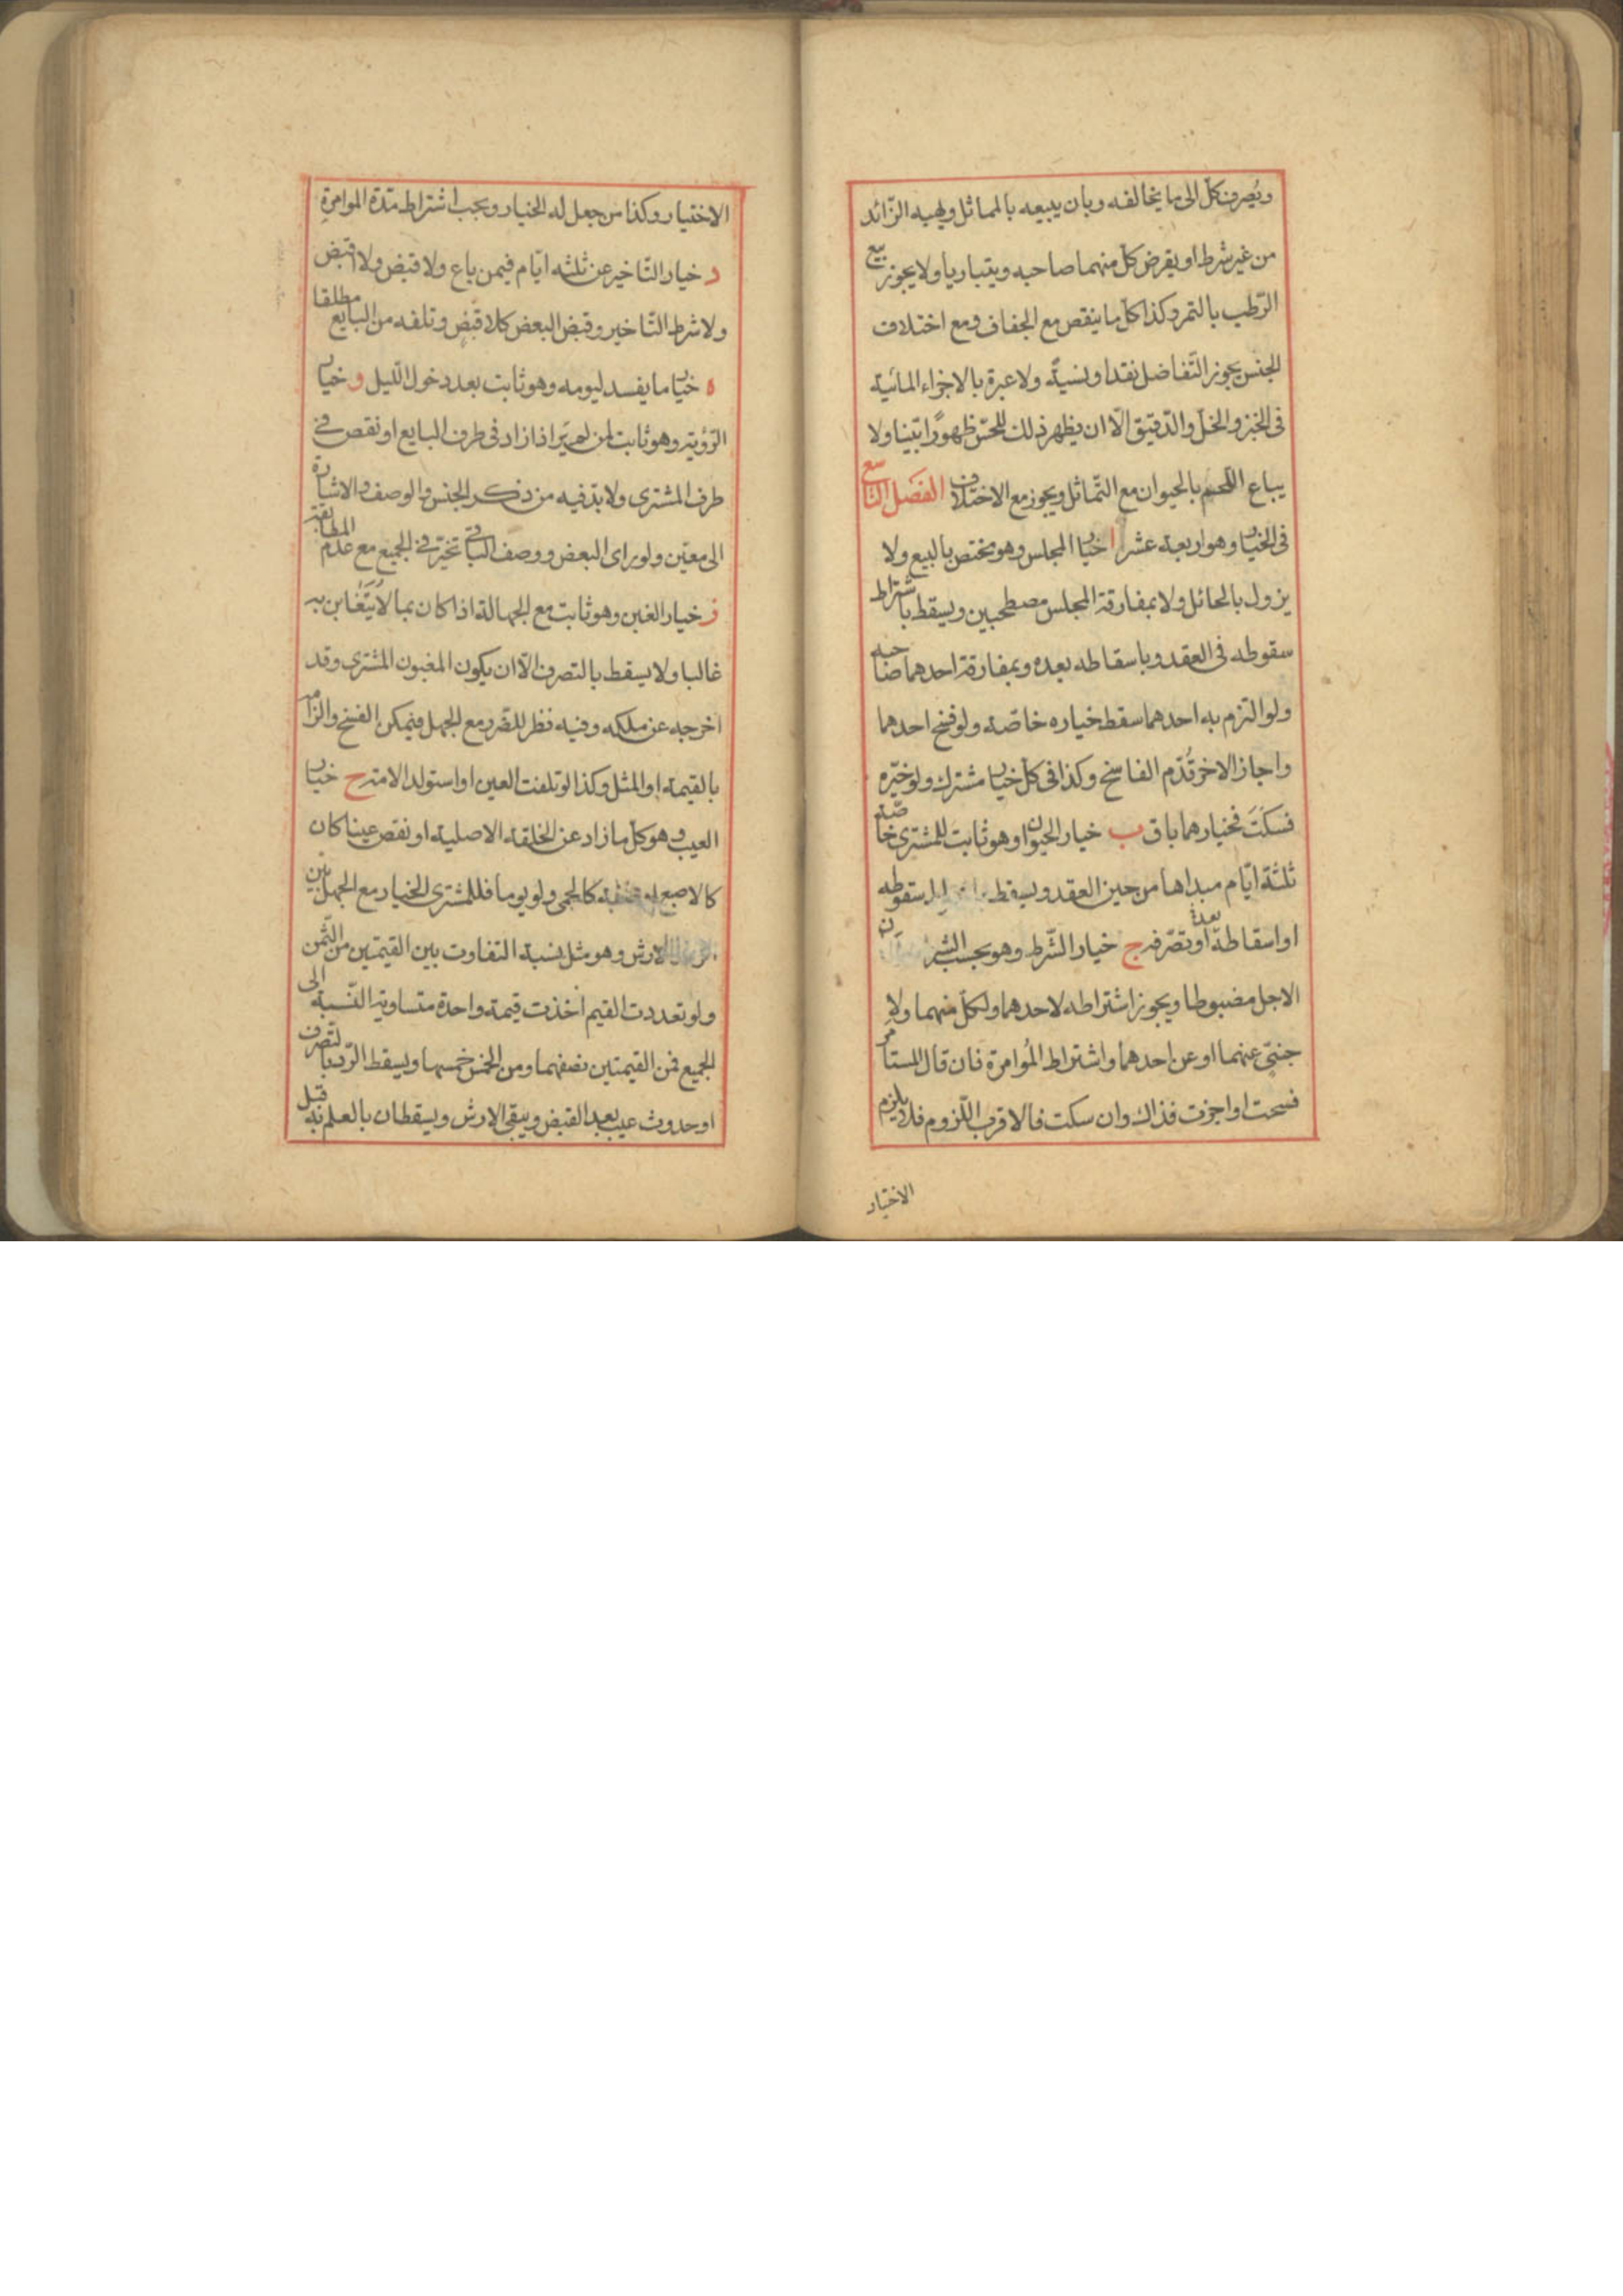 ويُصرف كلّ الى ما يخالفه وبان يبيعه بالمماثل ويهبه الزّائد
من غير شرط او يقرض كلّ منهما صاحبه ويتباريا ولا يجوز بيع
الرّطب بالتمر وكذا كل ما ينقص مع الجفاف ومع اختلاف
الجنس يجوز التّفاضل نقدا ونسيةً ولا عبرة بالاجزاء المائية
فى الخبز والخلّ والدّقيق الّا ان يظهر ذلك للحسّ ظهورًا بيّنا ولا
يباع اللّحم بالحيوان مع التّماثل ويجوز مع الاختلاف الفصل التاسع
فى الخيار وهو اربعة عشر ا خيار المجلس وهو مختص بالبيع ولا
يزول بالحائل ولا بمفارقة المجلس مصطحبين ويسقط باشتراط
سقوطه فى العقد وباسقاطه بعده وبمفارقة احدهما صاحبه
ولو التزم به احدهما سقط خياره خاصّة ولو فسخ احدهما
واجاز الاخر قُدّم الفاسخ وكذا فى كلّ خيار مشترك ولو خيّره
فسكَتَ فخيارهما باق ب خيار الحيوان وهو ثابت للمشترى خاصّة
ثلثة ايّام مبداها من حين العقد ويسقط سقوطه
او اسقاطه بعده او تصرّفه ج خيار الشّرط وهو بحسب الشرط
الاجل مضبوطا ويجوز اشتراطه لاحدهما ولكلّ منهما ولا
جنبىّ عنهما او عن احدهما واشتراط المُوامرة فان قال المستامر
فسخت او اجزت فذاك وان سكت فالاقرب اللّزوم فلا يلزم
الاختيار
الاختيار وكذا من جعل له الخيار ويجب اشتراط مدّة الموامرة
د خيار التّاخير عن ثلثه ايّام فيمن باع ولا قبض ولا اقبض
ولا شرط التّاخير وقبض البعض كلا قبض وتلفه من البايع مطلقا
ه خيار ما يفسد ليومه وهو ثابت بعد دخول اللّيل و خيار
الرّؤية وهو ثابت لمن لم يَر اذا زاد فى طرف البايع او نقص فى
طرف المشترى ولا بدّ فيه من ذكر الجنس والوصف والاشارة
الى معيّن ولو راى البعض ووصف الباقى تخيّر فى الجميع مع عدم المطابقة
ز خيار الغبن وهو ثابت مع الجهالة اذا كان بما لا يَتَغابن به
غالبا ولا يسقط بالتصرف الّا ان يكون المغبون المشترى وقد
اخرجه عن ملكه وفيه نظر للضّرر مع الجهل فيمكن الفسخ والزامه
بالقيمة او المثل وكذا لو تلفت العين او استولد الامة ح خيار
العيب وهو كلّ ما زاد عن الخلقة الاصلية او نقص عينا كان
كالاصبع او صفة كالحمى ولو يوما فللمشترى الخيار مع الجهل بين
الرد والارش وهو مثل نسبة التفاوت بين القيمتين من الثّمن
ولو تعددت القيم اخذت قيمة واحدة متساوية النّسبة الى
الجميع فمن القيمتين نصفهما ومن الخمس خمسها ويسقط الرّد بالتصرف
او حدوث عيب بعد القبض ويبقى الارش ويسقطان بالعلم به قبل